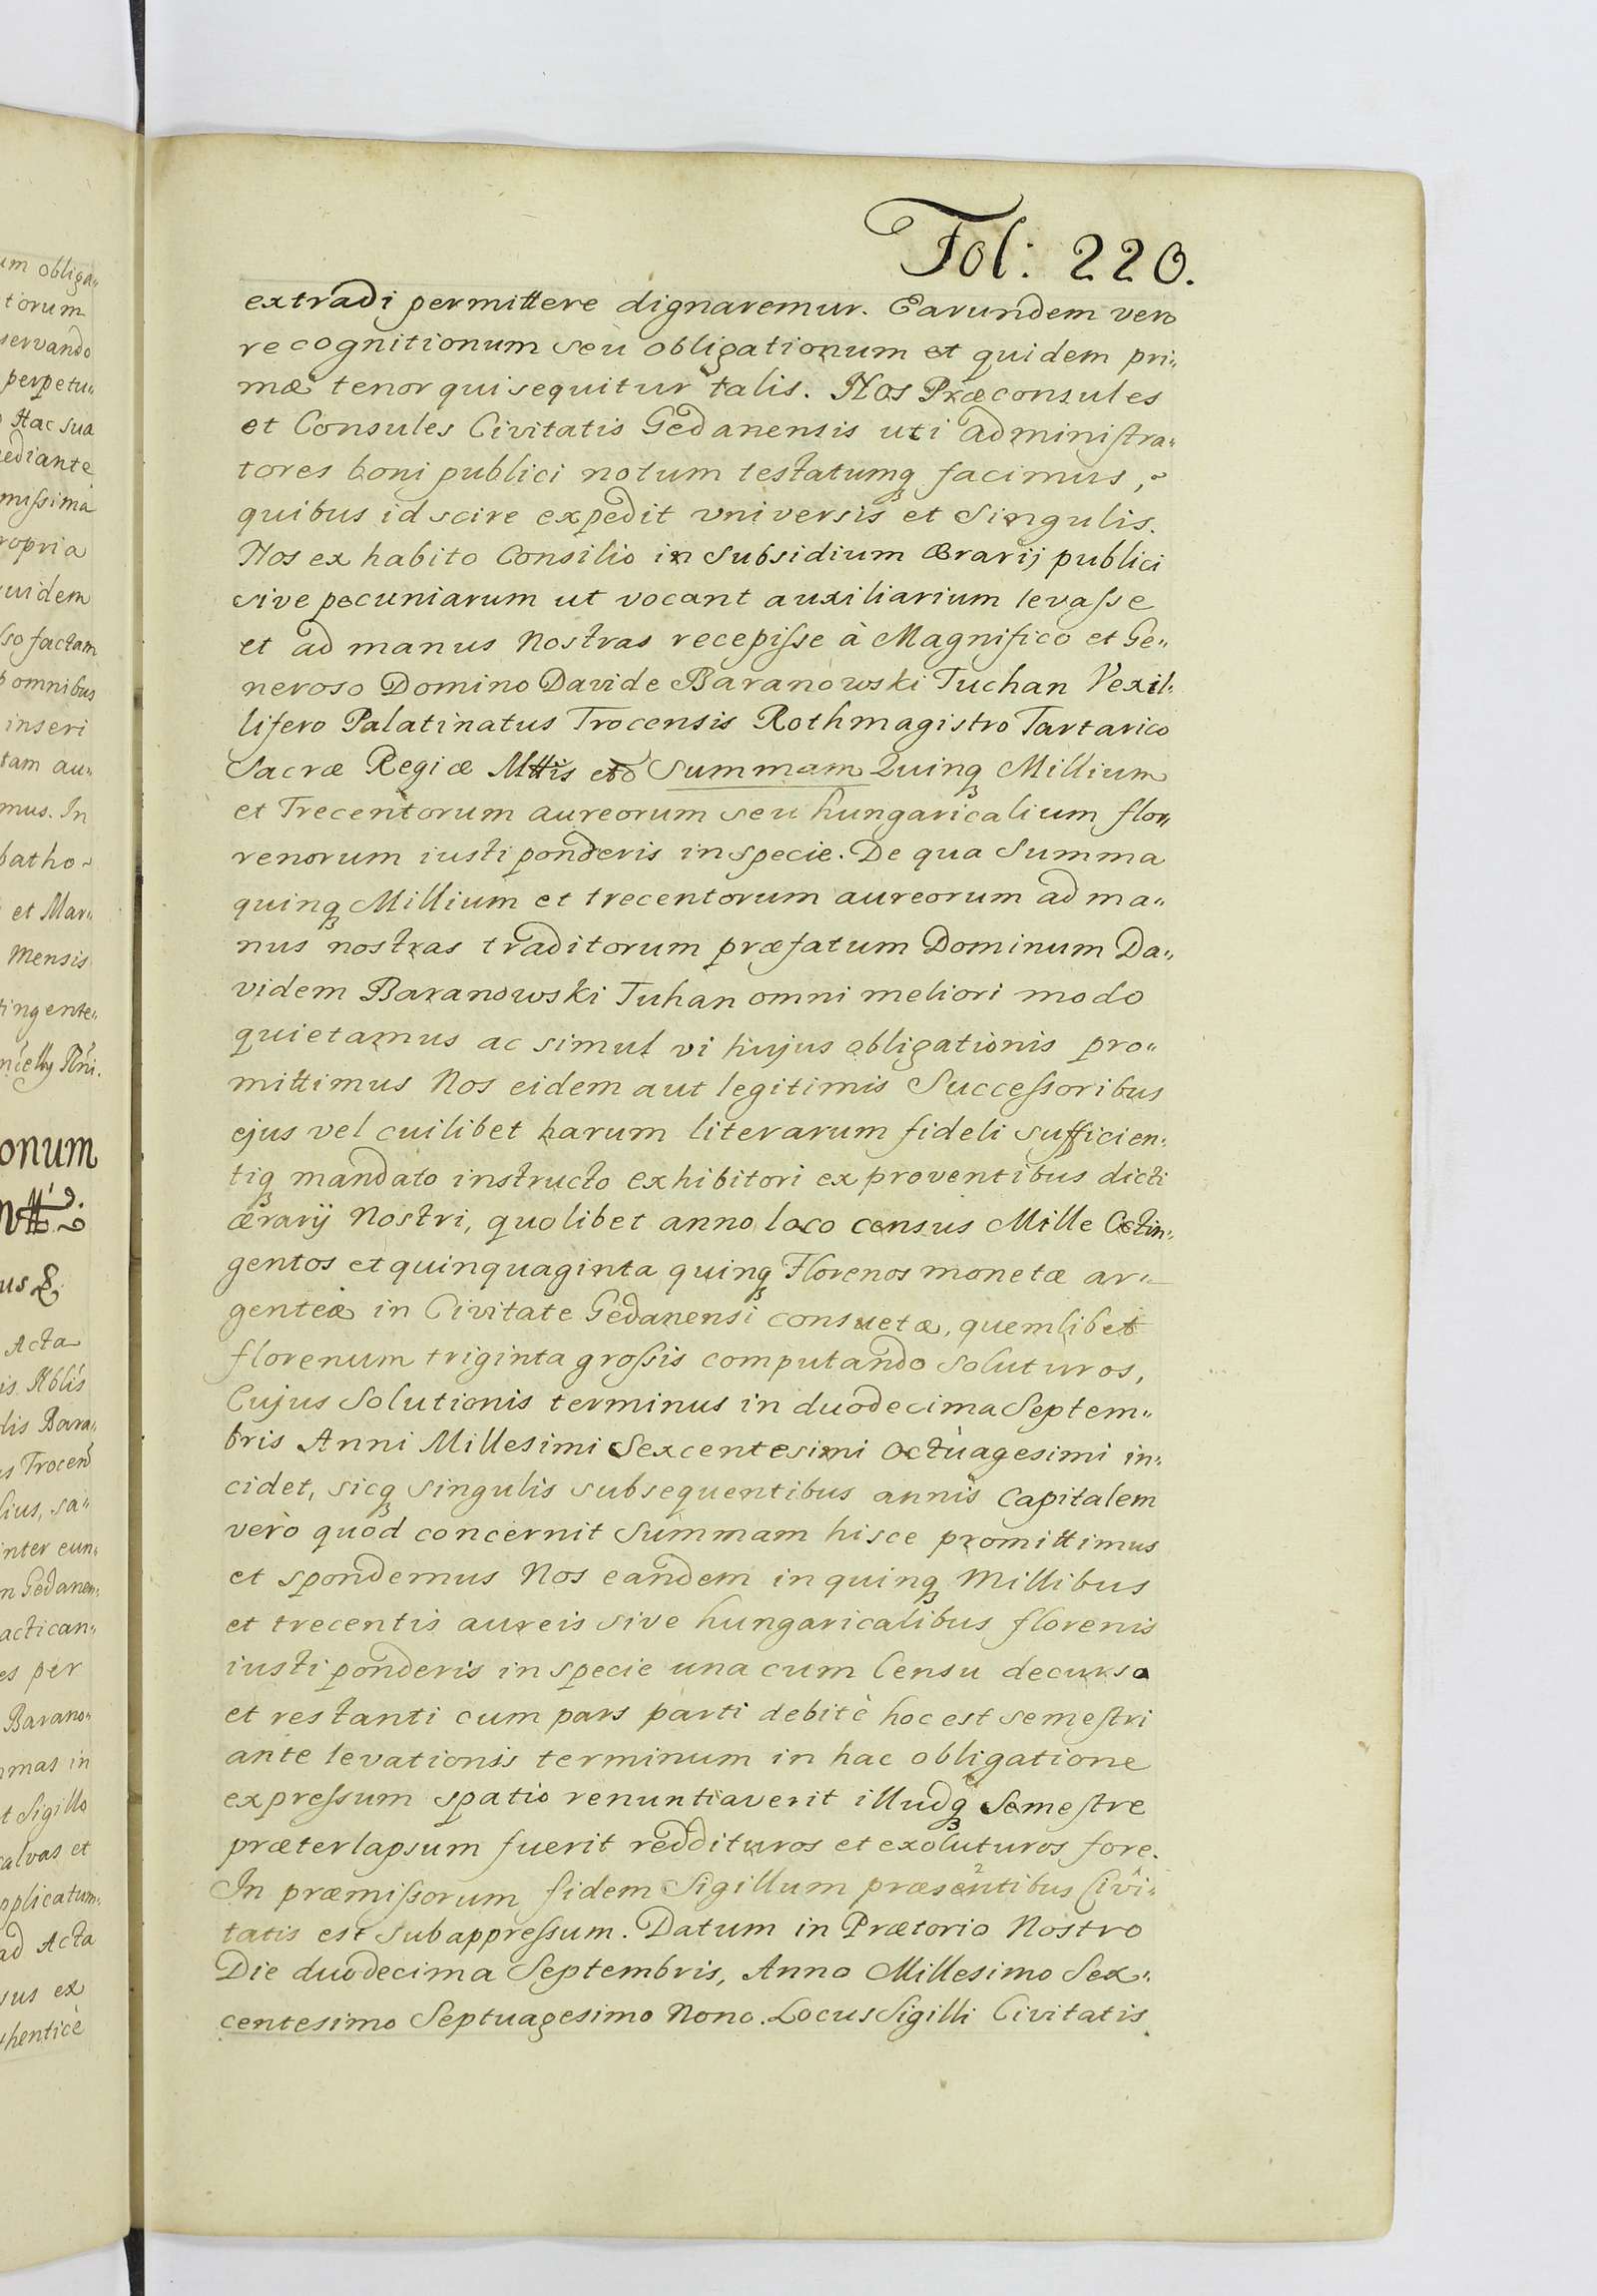 Fol: 220.
extradi permittere dignaremur. Earundem vero
recognitionum seu obligationum et quidem pri„
mæ tenor qui sequitur talis. Nos Præconsules
et Consules Civitatis Gedanensis uti administra„
tores boni publici notum testatumq₃ facimus,
quibus id scire expedit vniversis et Singulis.
Nos ex habito Consilio in Subsidium ærarij publici
sive pecuniarum ut vocant auxiliarium levasse
et ad manus Nostras recepisse à Magnifico et Ge„
neroso Domino Davide Baranowski Tuchan Vexil„
lifero Palatinatus Trocensis Rothmagistro Tartarico
Sacræ Regiæ Mttis Summam Quinq₃ Millium
et Trecentorum aureorum seu hungaricalium flor„
renorum iusti ponderis in specie. De qua Summa
quinq₃ Millium et trecentorum aureorum ad ma„
nus nostras traditorum præfatum Dominum Da„
videm Baranowski Tuhan omni meliori modo
quietamus ac simul vi hujus obligationis pro„
mittimus Nos eidem aut legitimis Successoribus
ejus vel cuilibet harum literarum fideli sufficien„
tiq₃ mandato instructo exhibitori ex proventibus dicti
ærarij Nostri, quolibet anno loco census Mille Octin„
gentos et quinquaginta quinq₃ Florenos monetæ ar„
genteæ in Civitate Gedanensi consuetæ, quemlibet
florenum triginta grossis computando soluturos,
Cujus Solutionis terminus in duodecima Septem„
bris Anni Millesimi Sexcentesimi Octuagesimi in„
cidet, sicq₃ singulis subsequentibus annis Capitalem
verò quod concernit Summam hisce promittimus
et spondemus Nos eandem in quinq₃ Millibus
et trecentis aureis sive hungaricalibus florenis
iusti ponderis in specie una cum Censu decurso
et restanti cum pars parti debitè hoc est semestri
ante levationis terminum in hac obligatione
expressum spatio renuntiaverit illudq₃ Semestre
præterlapsum fuerit reddituros et exoluturos fore.
In præmissorum fidem Sigillum præsentibus Civi„
tatis est Subappressum. Datum in Prætorio Nostro
Die duodecima Septembris, Anno Millesimo Sex„
centesimo Septuagesimo Nono. Locus Sigilli Civitatis